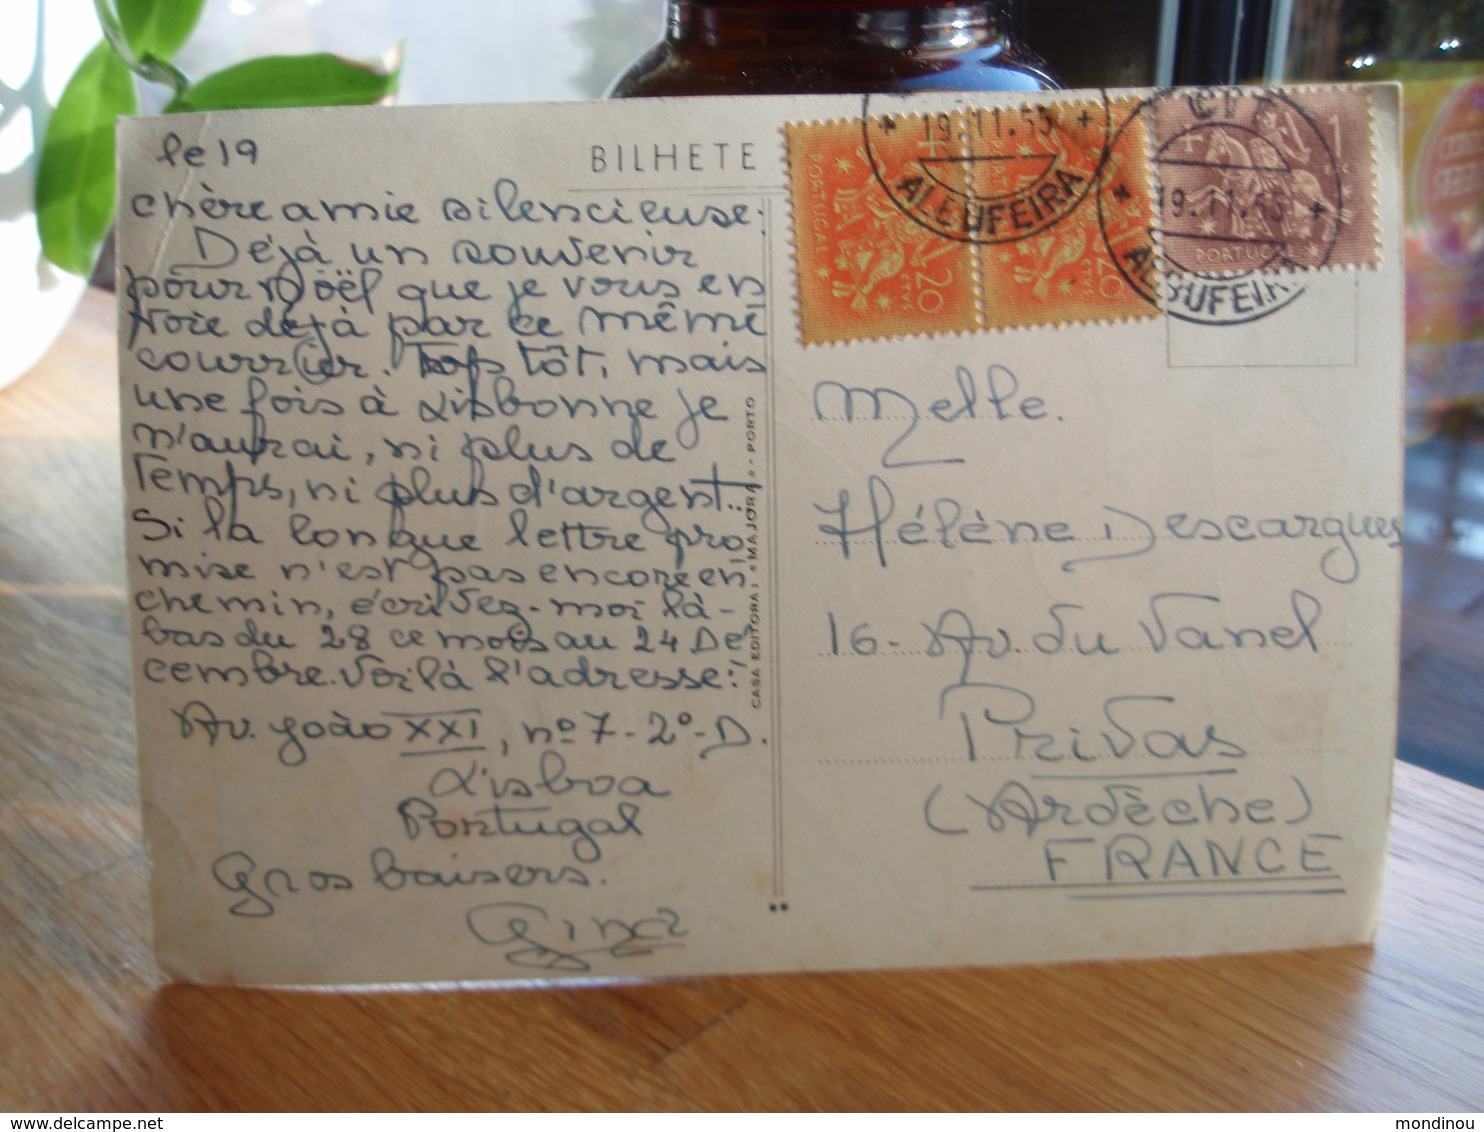 le 19
BILHETE
chère amie silencieuse:
Déjà un souvenir
pour Noël que je vous en
voie déjà par ce même
courrier. Trop tôt, mais
une fois à Lisbonne je
n'aurai, ni plus de
Temps, ni plus d'argent..
Si la longue lettre pro
mise n'est pas encore en
chemin, écrivez-moi là-
bas du 28 ce mois au 24 De
cembre. Voilà l'adresse:
Av. João XXI, nº 7-2º-D.
Lisboa
Portugal
Gros baisers.
Gina
CASA EDITORA, «MAJORA» - PORTO
PORTUGAL
20
CTVS.
PORTUGAL
20
CTVS.
1
PORTUGAL
19.11.55
ALBUFEIRA
19.11.55
ALBUFEIRA
Melle.
Hélène Descargues
16- Av. du Vanel
Privas
(Ardèche)
FRANCE
delcampe.net
mondinou